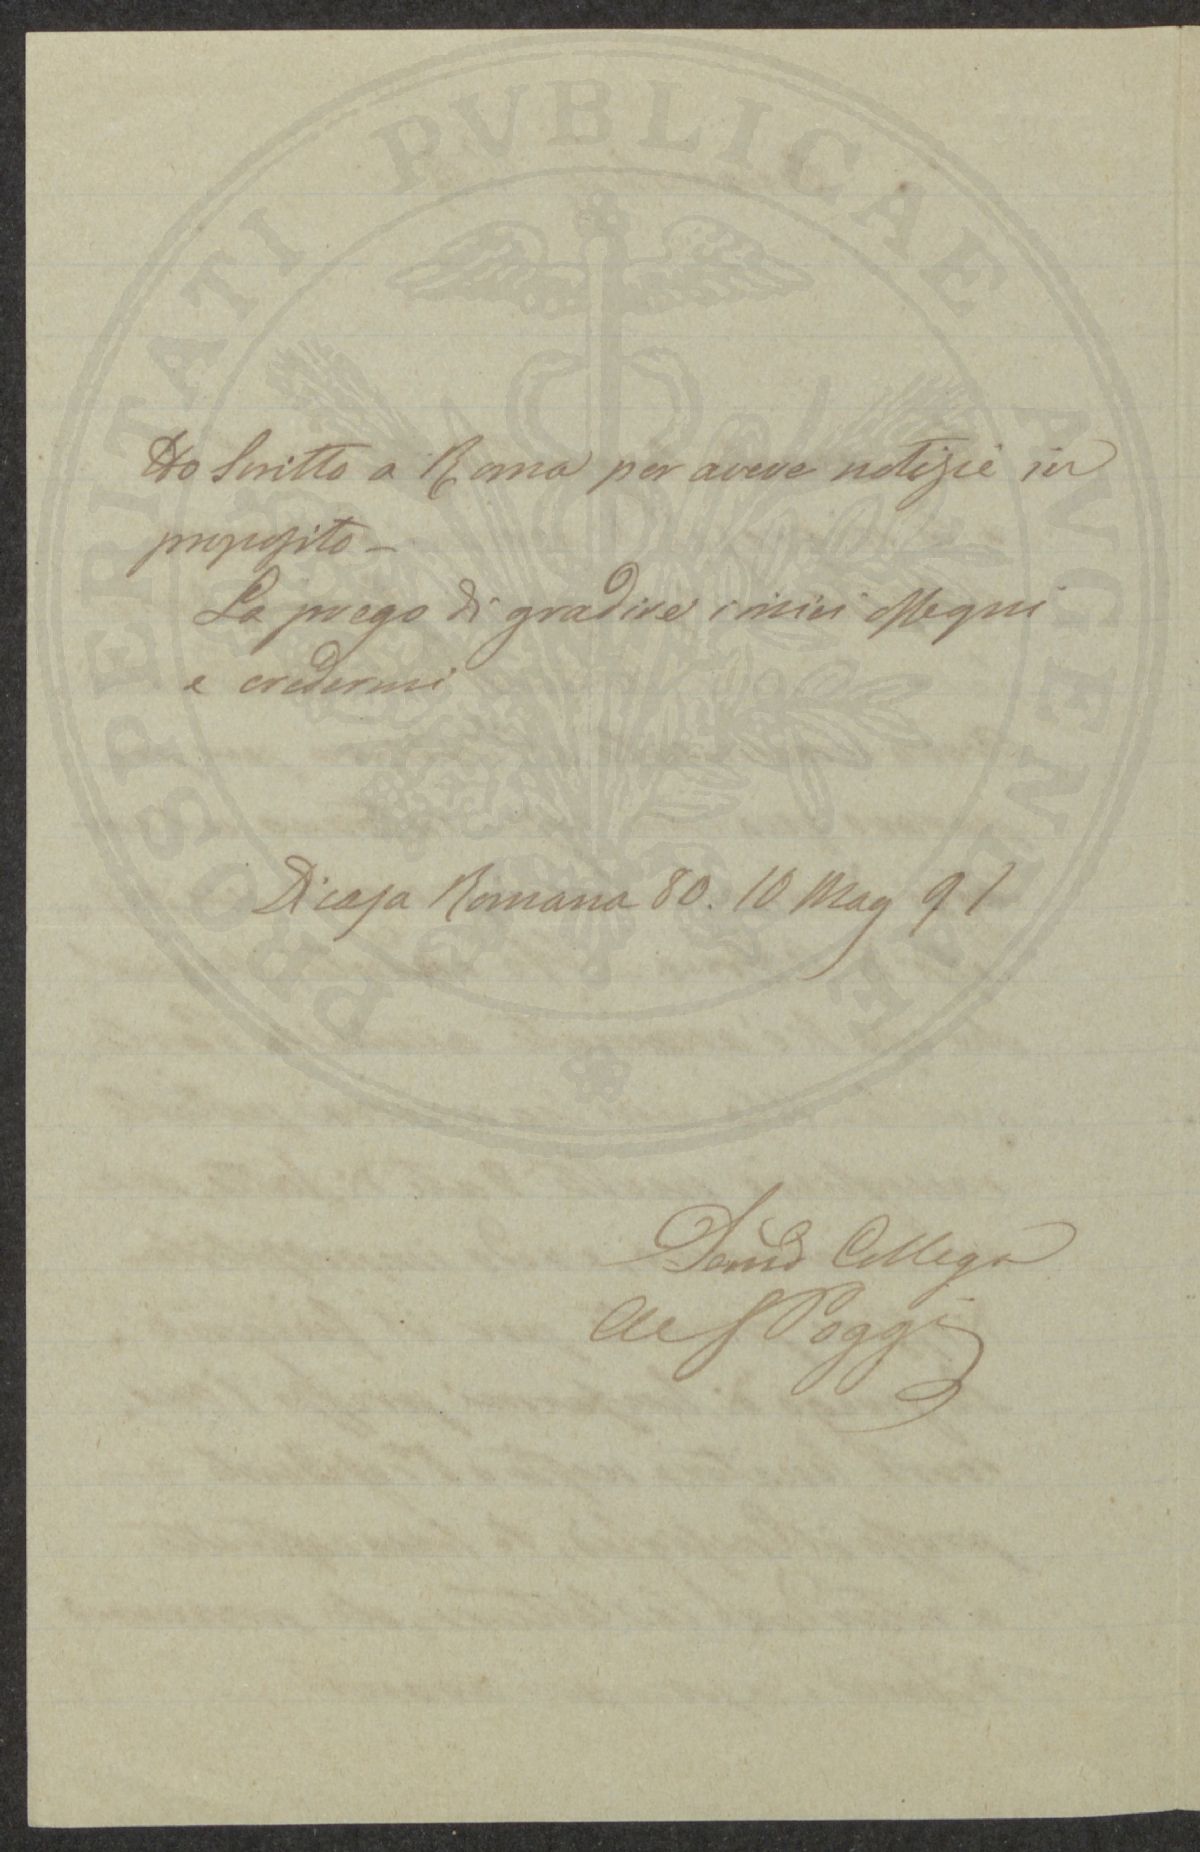 PROSPERITATI PVBLICAE AVGENDAE
Ho scritto a Roma per avere notizie in
proposito —
La prego di gradire i miei ossequi
e credermi
Di casa Romana 80. 10 Mag 91
Collega
Poggi